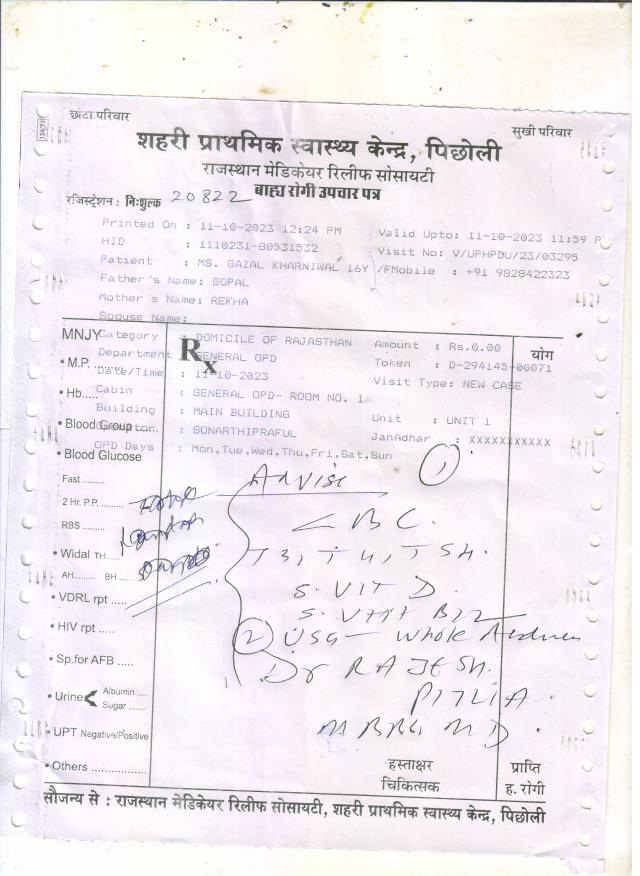 छोटा परिवार
सुखी परिवार
शहरी प्राथमिक स्वास्थ्य केन्द्र, पिछोली
राजस्थान मेडिकेयर रिलीफ सोसायटी
रजिस्ट्रेशन : निःशुल्क 20822 बाह्य रोगी उपचार पत्र
Printed On : 11-10-2023 12:24 PM Valid Upto: 11-10-2023 11:59 P
HID : 1110231-80531532 Visit No: V/UPHPDU/23/03295
Patient : MS. GAZAL KHARNIWAL 16Y /F Mobile : +91 9828422323
Father's Name: GOPAL
Mother's Name: REKHA
Spouse Name:
MNJY Category : DOMICILE OF RAJASTHAN Amount : Rs.0.00 योग
Rx
Department : GENERAL OPD Token : D-294145-00071
• M.P. Date/Time : 11-10-2023 Visit Type: NEW CASE
• Hb..... Cabin : GENERAL OPD- ROOM NO. 1
Building : MAIN BUILDING Unit : UNIT 1
• Blood Group .... : SONARTHIPRAFUL JanAdhar : XXXXXXXXXXX
OPD Days : Mon,Tue,Wed,Thu,Fri,Sat,Sun
• Blood Glucose
1
Advise
Fast ........
2 Hr. P.P. ......
CBC.
RBS ........
• Widal TH ....
T3, T4, TSH.
AH........ BH ....
S. VIT D.
• VDRL rpt .....
S. VIT B12
• HIV rpt .....
2 USG - Whole Abdomen
• Sp.for AFB .....
Dr RAJESH.
• Urine Albumin ....
Sugar .......
PITLIA.
• UPT Negative/Positive
MBBS MD
• Others .................
हस्ताक्षर
चिकित्सक
प्राप्ति
ह. रोगी
सौजन्य से : राजस्थान मेडिकेयर रिलीफ सोसायटी, शहरी प्राथमिक स्वास्थ्य केन्द्र, पिछोली